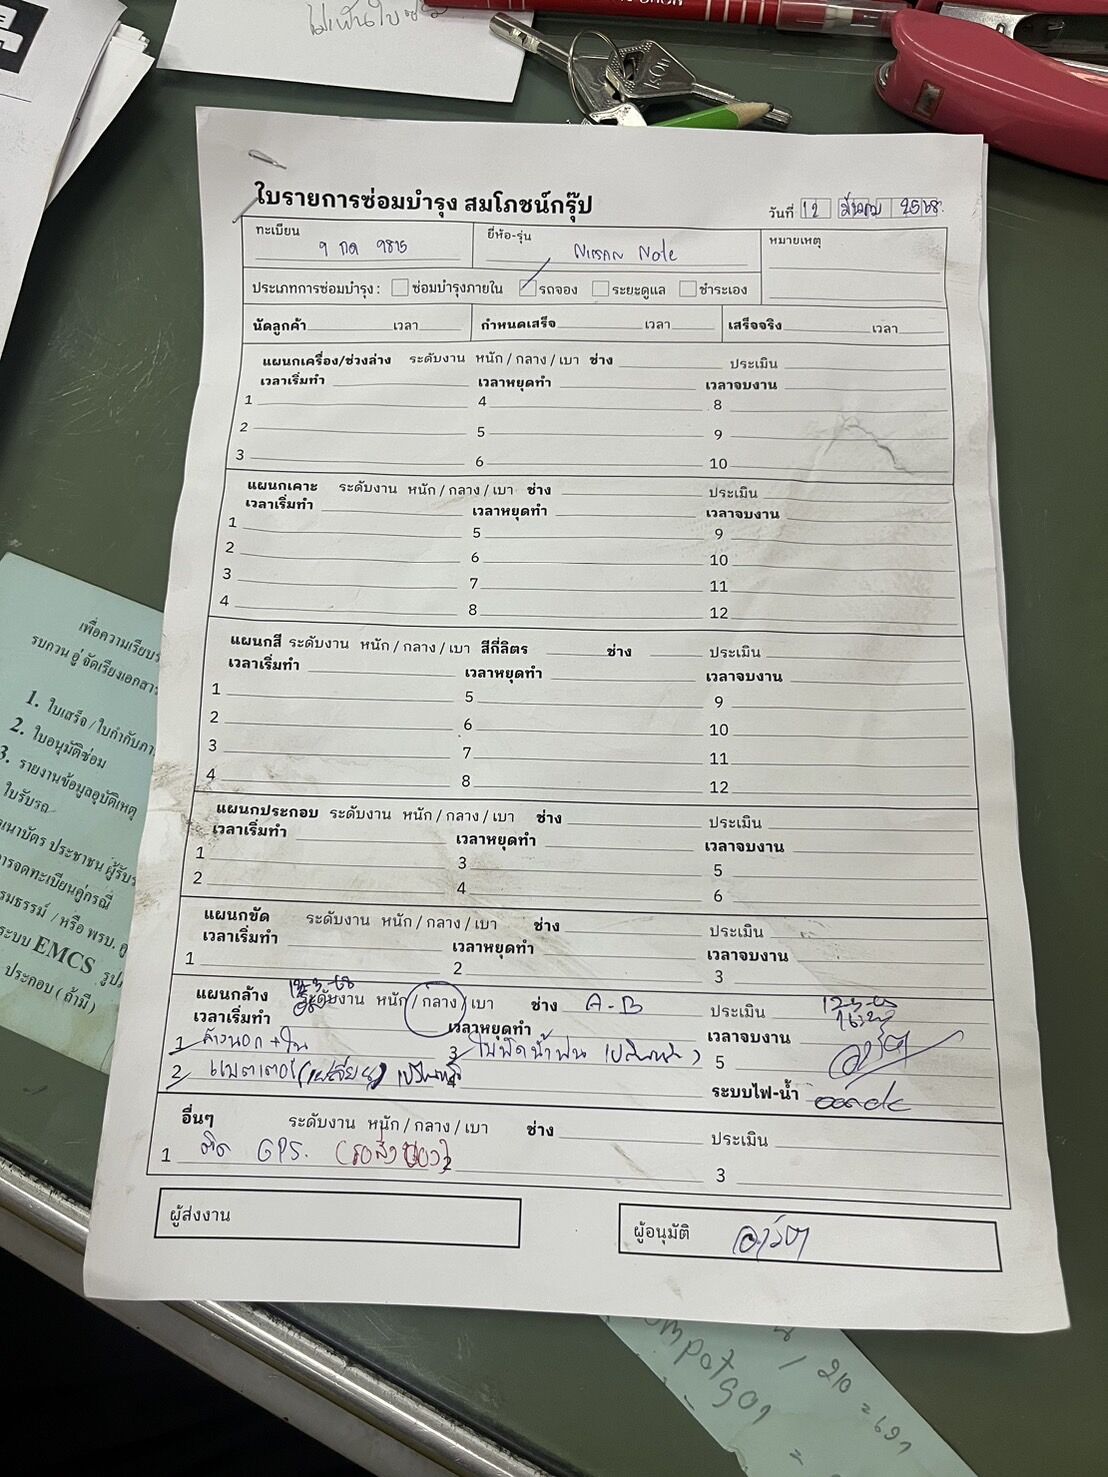 ไม่เห็นใบ
ใบรายการซ่อมบำรุง สมโภชน์กรุ๊ป
วันที่ 12 มีนาคม 2568
ทะเบียน ยี่ห้อ-รุ่น หมายเหตุ
9815 Nissan Note
ประเภทการซ่อมบำรุง : ซ่อมบำรุงภายใน รถจอง ระยะดูแล ชำระเอง
นัดลูกค้า เวลา กำหนดเสร็จ เวลา เสร็จจริง เวลา
แผนกเครื่อง/ช่วงล่าง ระดับงาน หนัก / กลาง / เบา ช่าง ประเมิน
เวลาเริ่มทำ เวลาหยุดทำ เวลาจบงาน
1 4 8
2 5 9
3 6 10
แผนกเคาะ ระดับงาน หนัก / กลาง / เบา ช่าง ประเมิน
เวลาเริ่มทำ เวลาหยุดทำ เวลาจบงาน
1 5 9
2 6 10
3 7 11
4 8 12
แผนกสี ระดับงาน หนัก / กลาง / เบา สีกี่ลิตร ช่าง ประเมิน
เวลาเริ่มทำ เวลาหยุดทำ เวลาจบงาน
1 5 9
2 6 10
3 7 11
4 8 12
แผนกประกอบ ระดับงาน หนัก / กลาง / เบา ช่าง ประเมิน
เวลาเริ่มทำ เวลาหยุดทำ เวลาจบงาน
1 3 5
2 4 6
แผนกขัด ระดับงาน หนัก / กลาง / เบา ช่าง ประเมิน
เวลาเริ่มทำ เวลาหยุดทำ เวลาจบงาน
1 2 3
แผนกล้าง 12-3-68 ระดับงาน หนัก / กลาง / เบา ช่าง A-B ประเมิน 12-3-68
เวลาเริ่มทำ เวลาหยุดทำ เวลาจบงาน
1 ล้างนอก + ใน 3 ใบปัดน้ำฝน 5
2 แบตเตอรี่ 4 ระบบไฟ-น้ำ
อื่นๆ ระดับงาน หนัก / กลาง / เบา ช่าง ประเมิน
1 ติด GPS. (รอสั่งของ) 2 3
ผู้ส่งงาน ผู้อนุมัติ
เพื่อความเรียบร
รบกวน อู่ จัดเรียงเอกสาร
1. ใบเสร็จ / ใบกำกับภา
2. ใบอนุมัติซ่อม
3. รายงานข้อมูลอุบัติเหตุ
ใบรับรถ
เนาบัตร ประชาชน ผู้รับร
ารจดทะเบียนคู่กรณี
รมธรรม์ / หรือ พรบ. คู
ระบบ EMCS รูป
ประกอบ ( ถ้ามี )
/ 210 = 697